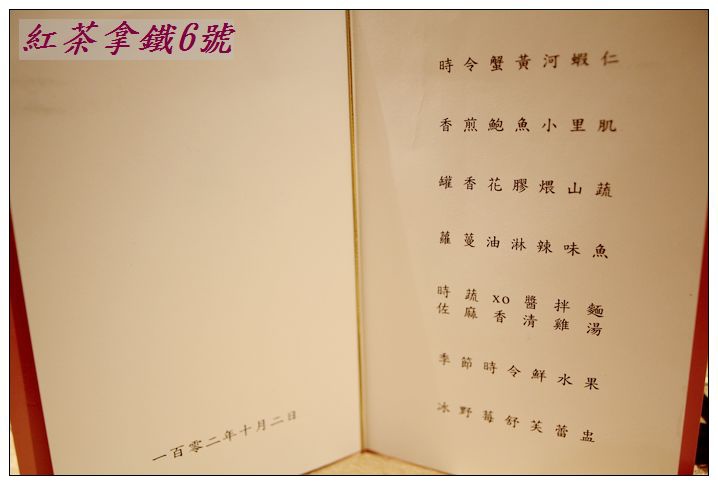 紅茶拿鐵6號
時令蟹黃河蝦仁
香煎鮑魚小里肌
罐香花膠煨山蔬
蘿蔓油淋辣味魚
時蔬xo醬拌麵
佐麻香清雞湯
季節時令鮮水果
冰野莓舒芙蕾盅
一百零二年十月二日